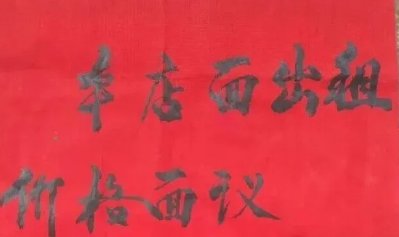 本店面出租
价格面议